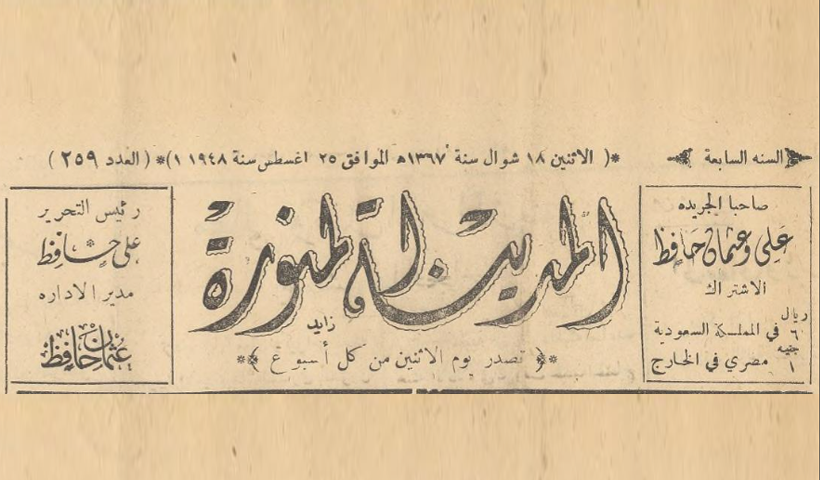 السنه السابعة
الاثنين ١٨ شوال سنة ١٣٦٧ھ الموافق ٢٥ اغسطس سنة ١٩٤٨ ١)* ( العدد ٢٥٩ )
صاحبا الجريده
علي وعثمان حافظ
الاشتراك
ريال
٦ في المملكة السعودية
جنيه
١ مصري في الخارج
المدينة المنورة
زايد
تصدر يوم الاثنين من كل أسبوع
رئيس التحرير
علي حافظ
مدير الاداره
عثمان حافظ